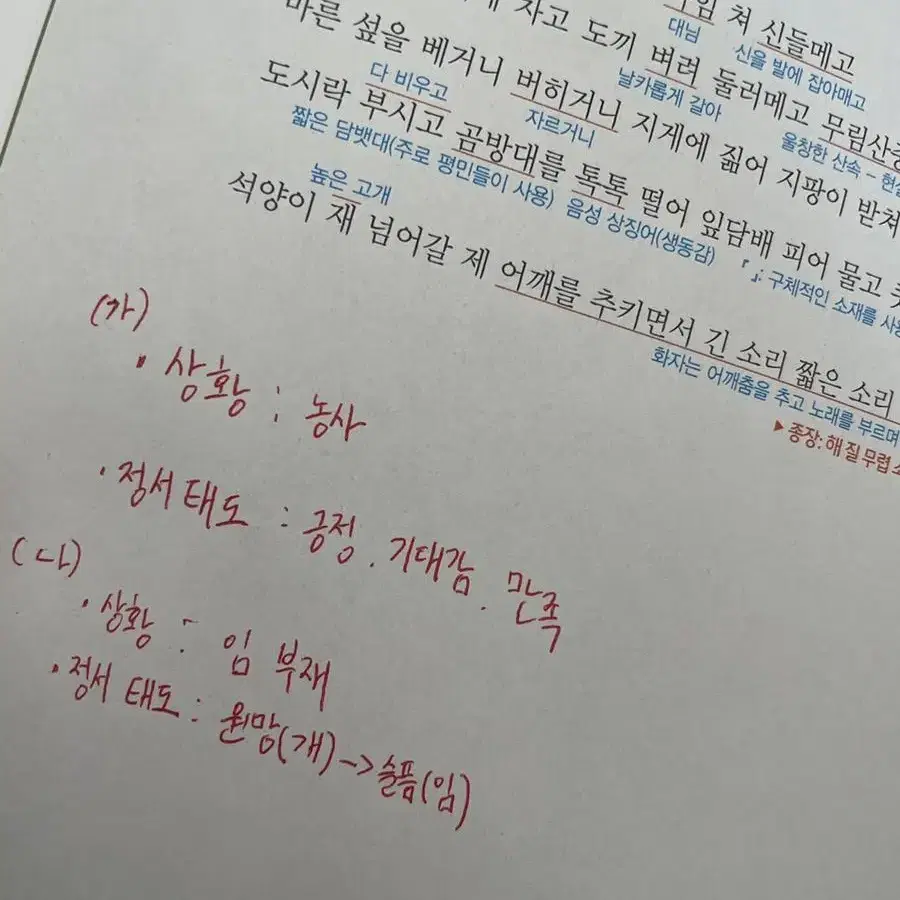 쳐 신들메고
대님 신을 발에 잡아매고
자고 도끼 벼려 둘러메고 무림산중
날카롭게 갈아 울창한 산속 – 현실
마른 섶을 베거니 버히거니 지게에 짊어 지팡이 받쳐
다 비우고 자르거니
도시락 부시고 곰방대를 톡톡 떨어 잎담배 피어 물고
짧은 담뱃대(주로 평민들이 사용) 음성 상징어(생동감) 『』: 구체적인 소재를 사용
높은 고개
석양이 재 넘어갈 제 어깨를 추키면서 긴 소리 짧은 소리
화자는 어깨춤을 추고 노래를 부르며
▶ 종장: 해 질 무렵
(가)
· 상황 : 농사
· 정서 태도 : 긍정. 기대감. 만족
(나)
· 상황 : 임 부재
· 정서 태도 : 원망(개) -> 슬픔(임)